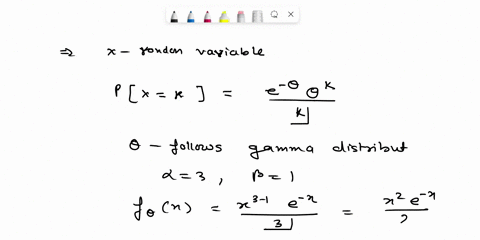 ⇒ x – random variable
P[x = x] = e^-θ θ^k / k!
θ – follows gamma distribut
α = 3 , β = 1
f_θ(x) = x^(3-1) e^-x / 3! = x^2 e^-x / 2